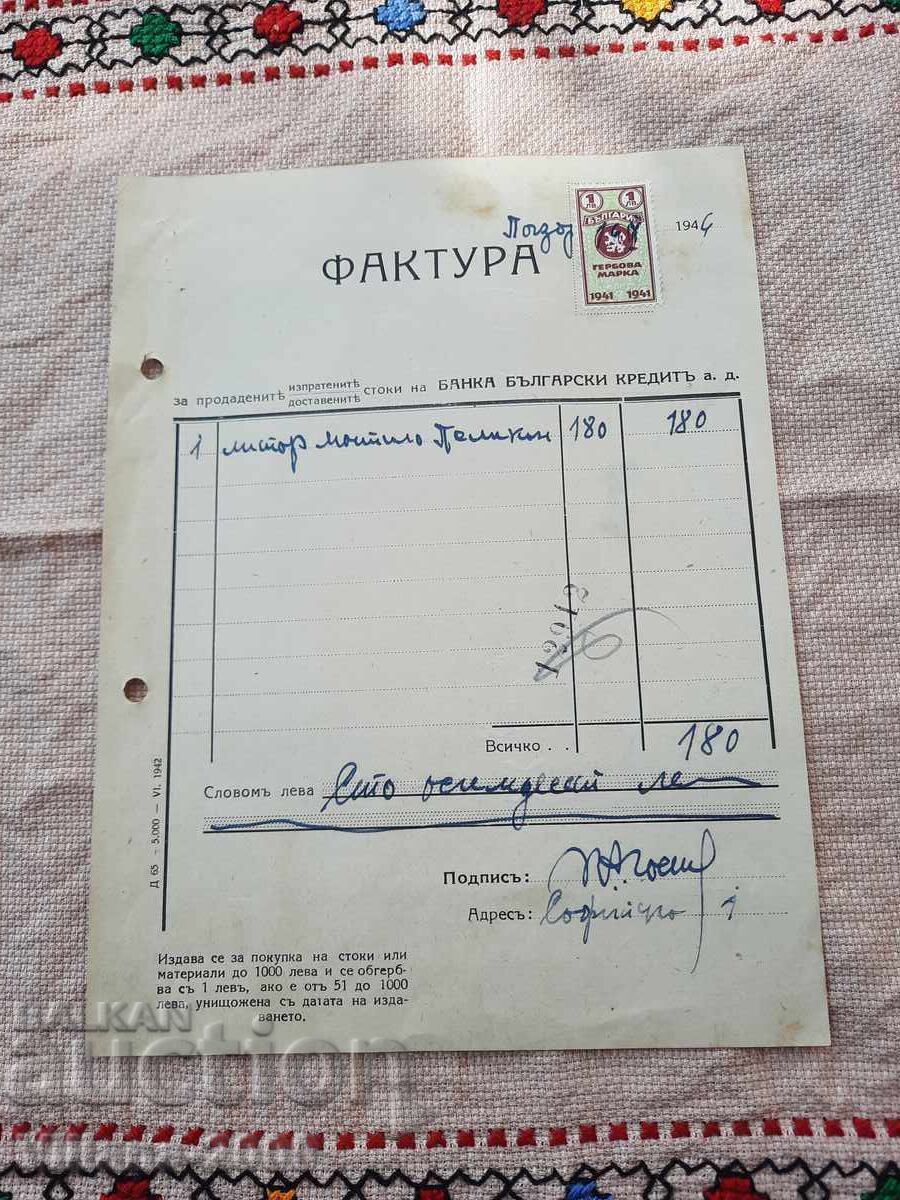 1 ЛВ. 1 ЛВ.
БЪЛГАРИЯ
ГЕРБОВА
МАРКА
1941 1941
1944
ФАКТУРА
за продаденитѣ изпратенитѣ доставенитѣ стоки на БАНКА БЪЛГАРСКИ КРЕДИТЪ а. д.
1 литър мастило Пеликан 180 180
12913
Всичко . . 180
Словомъ лева Сто осемдесет лв
Подписъ:
Адресъ: 1
Д 65 – 5.000 – VI. 1942
Издава се за покупка на стоки или
материали до 1000 лева и се обгерб-
ва съ 1 левъ, ако е отъ 51 до 1000
лева, унищожена съ датата на изда-
ването.
BALKAN
auction